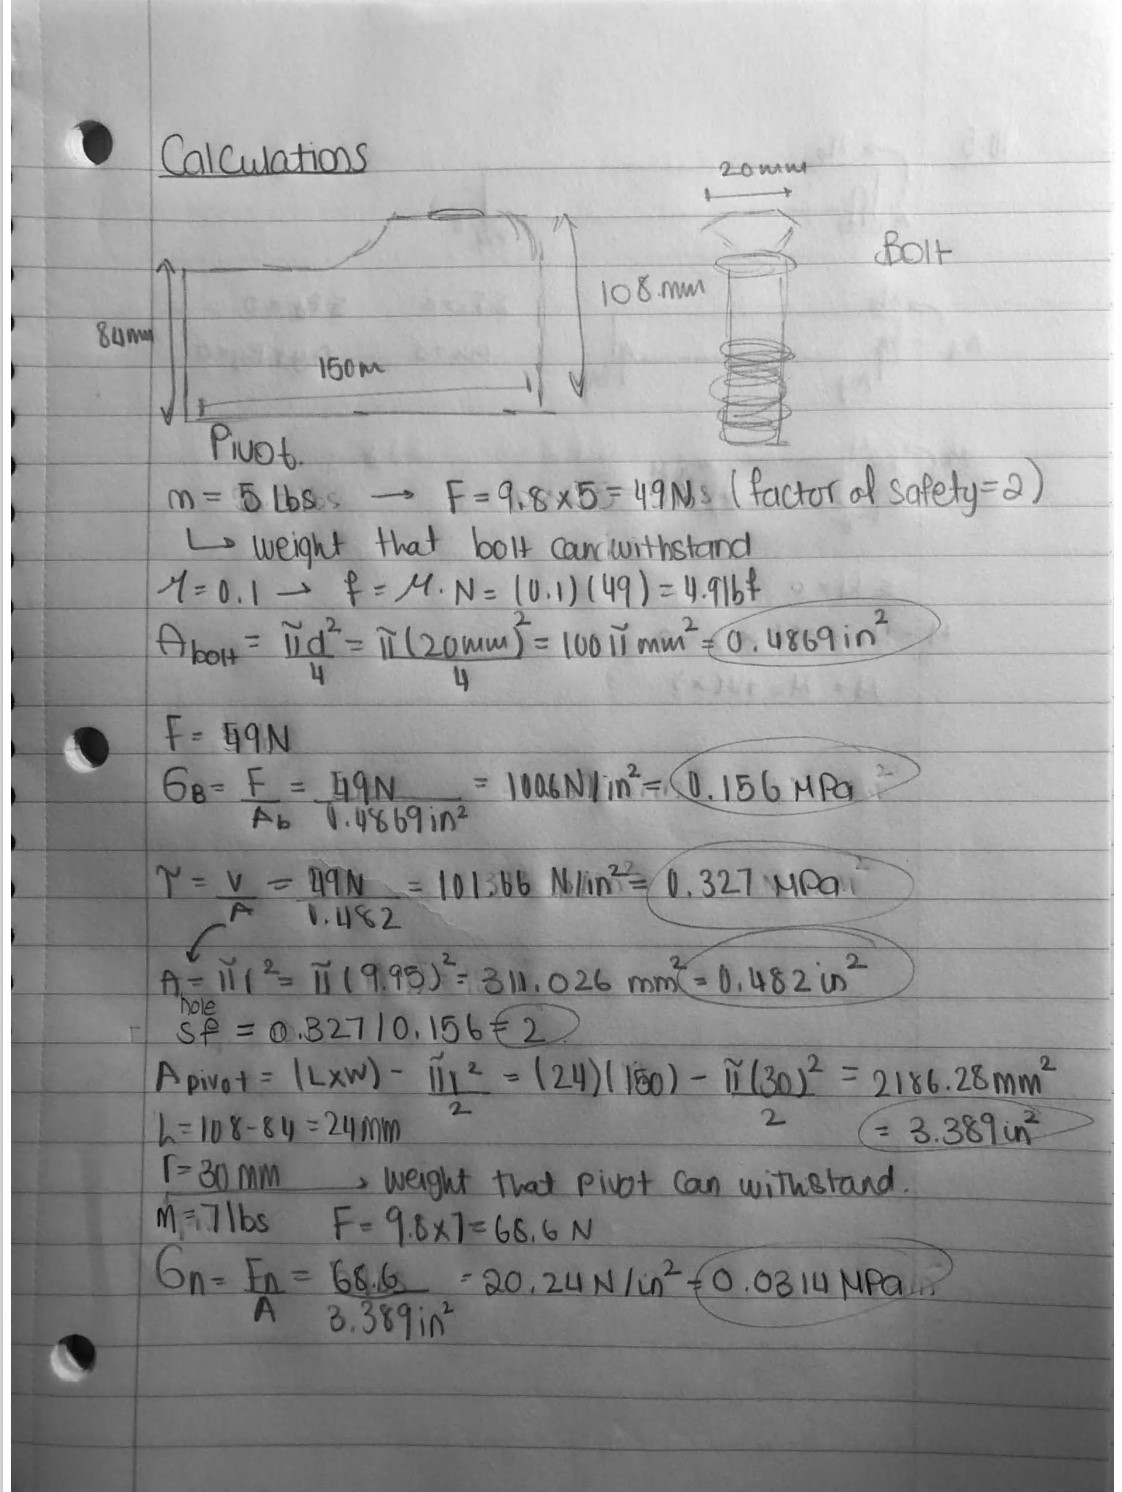 Calculations
20mm
Bolt
108 mm
84mm
150m
Pivot.
m = 5 lbs → F = 9.8 x 5 = 49N (factor of safety = 2)
↳ weight that bolt can withstand
μ = 0.1 → f = μ · N = (0.1)(49) = 4.9lbf
A bolt = πd²/4 = π(20mm)²/4 = 100π mm² = 0.4869in²
F = 49N
σB = F/Ab = 49N/0.4869in² = 100.6N/in² = 0.156 MPa
τ = V/A = 49N/0.482 = 101.366 N/in² = 0.327 MPa
A hole = πr² = π(9.95)² = 311.026 mm² = 0.482 in²
Sf = 0.327/0.156 = 2
A pivot = (LxW) - πr²/2 = (24)(150) - π(30)²/2 = 2186.28mm²
L = 108-84 = 24mm = 3.389in²
r = 30 mm → weight that pivot can withstand.
m = 7lbs F = 9.8x7 = 68.6 N
σn = Fn/A = 68.6/3.389in² = 20.24 N/in² = 0.0314 MPa